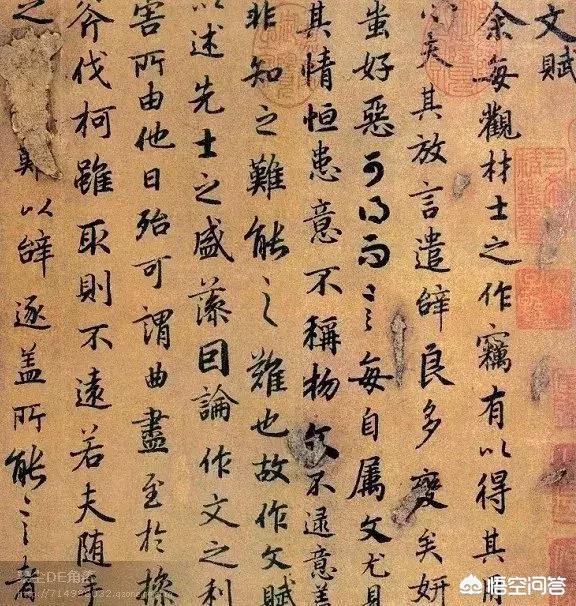 文賦
余每觀材士之作竊有以得其用
心矣其放言遣辭良多變矣妍
蚩好惡可得而言每自屬文尤見
其情恒患意不稱物文不逮意盖
非知之難能之難也故作文賦
以述先士之盛藻因論作文之利
害所由他日殆可謂曲盡至於操
斧伐柯雖取則不遠若夫随手
之 難以辭逐盖所能言者
士DE角落
悟空问答